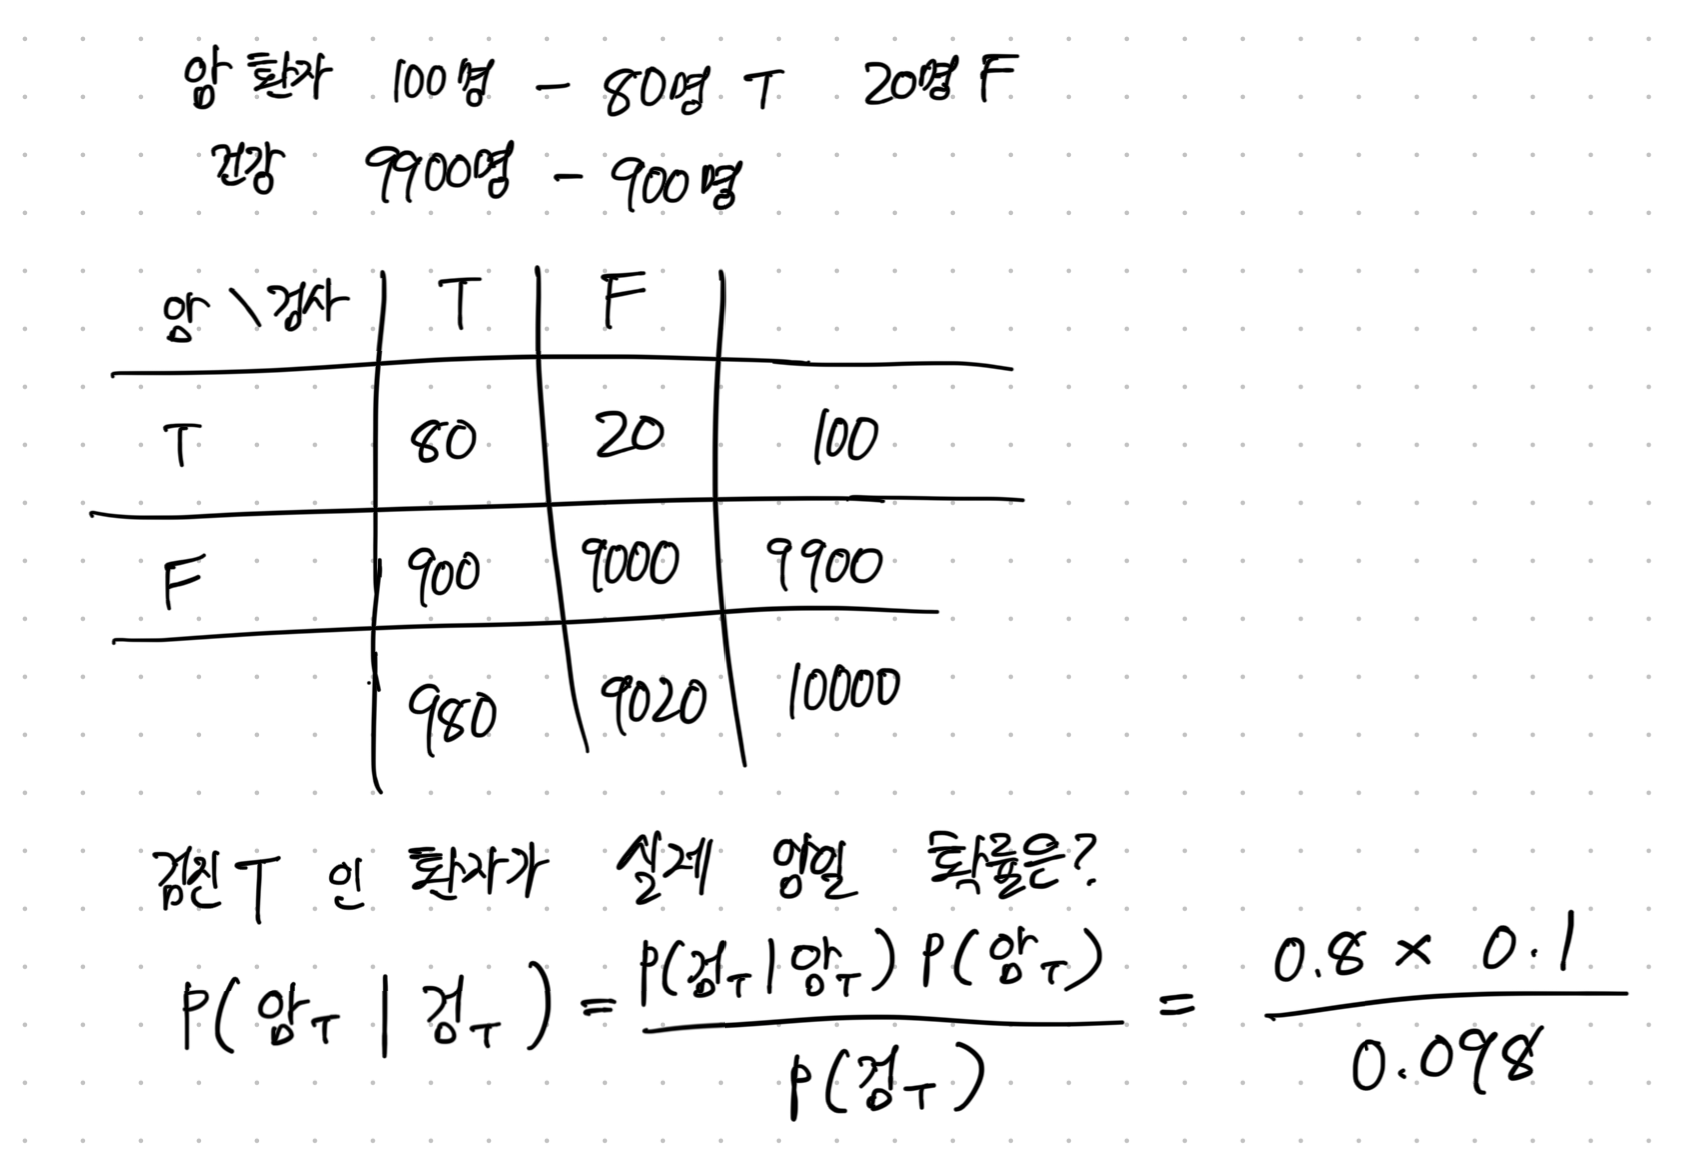 암 환자 100명 - 80명 T 20명 F
건강 9900명 - 900명
암 \ 검사 T F
T 80 20 100
F 900 9000 9900
980 9020 10000
검진 T 인 환자가 실제 암일 확률은?
P(암T | 검T) = P(검T | 암T) P(암T) / P(검T) = 0.8 × 0.1 / 0.098